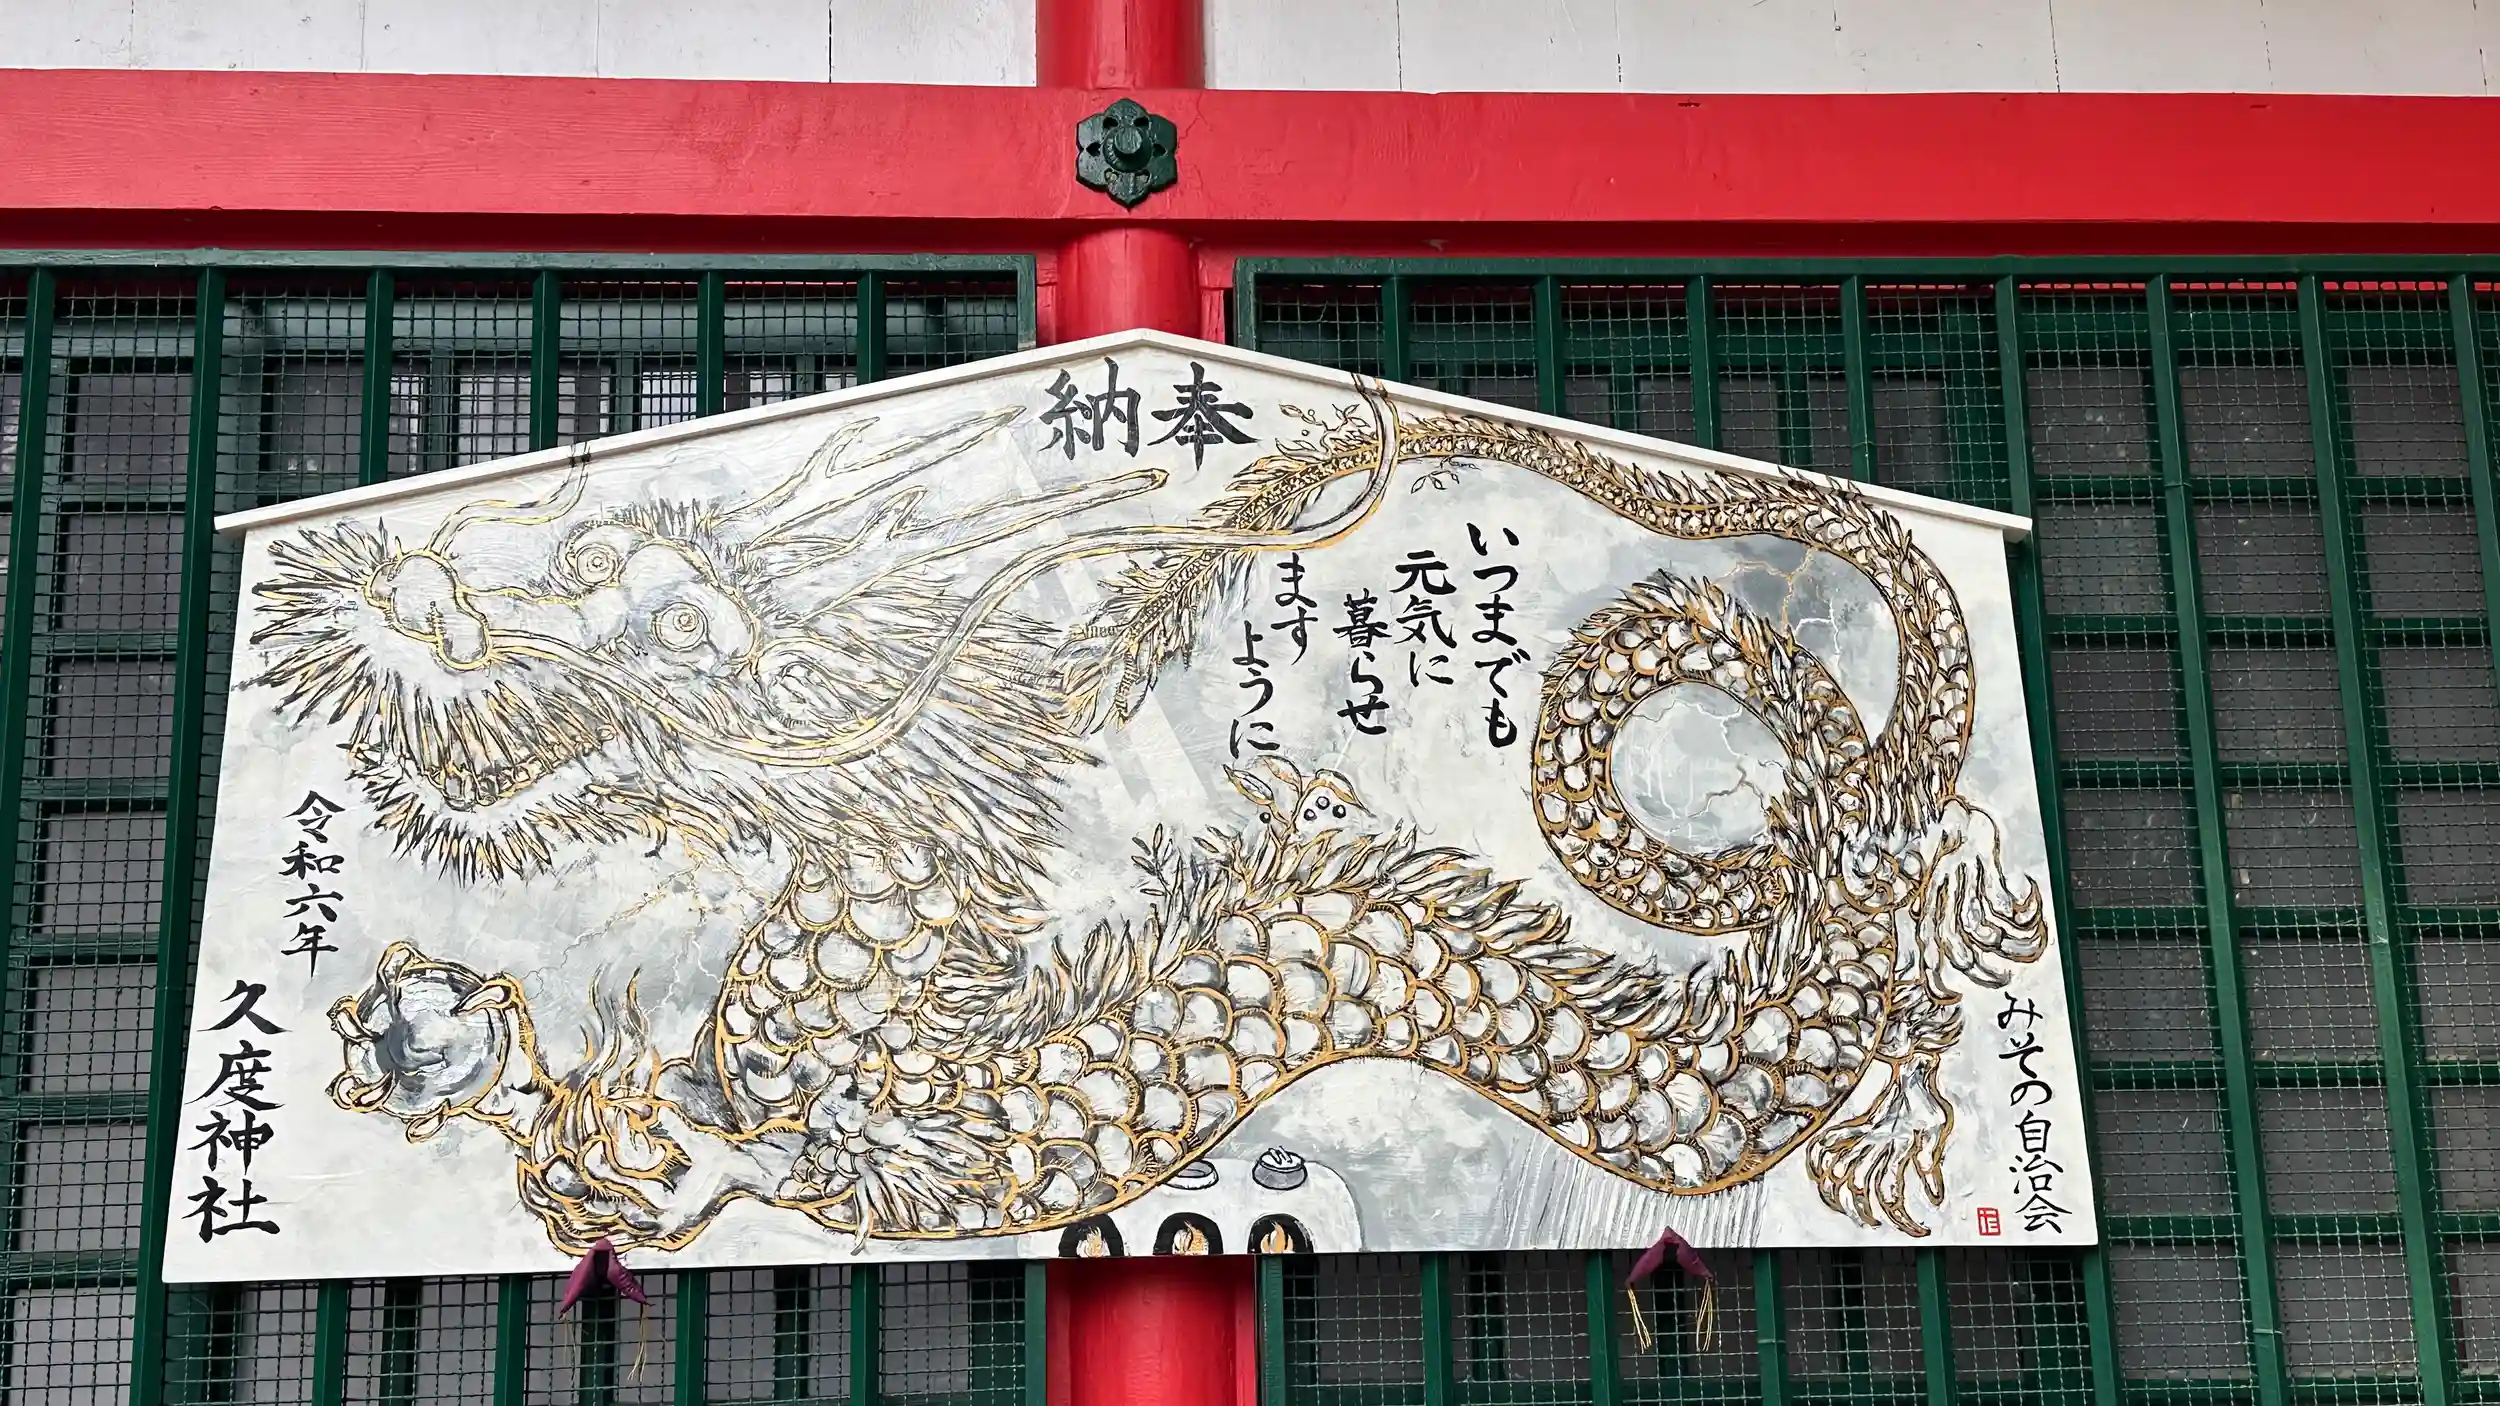 奉納
いつまでも
元気に
暮らせ
ます
ように
みその自治会
令和六年
久度神社